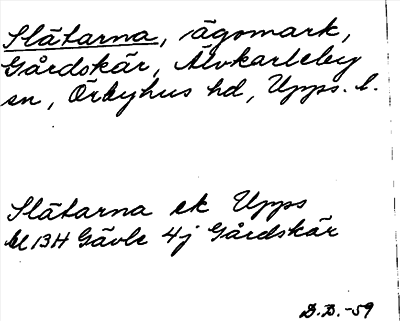 Slätarna, ägomark,
Gårdskär, Älvkarleby
sn, Örbyhus hd, Upps. l.
Slätarna ek Upps
bl 13H Gävle 4j Gårdskär
D.B.-59